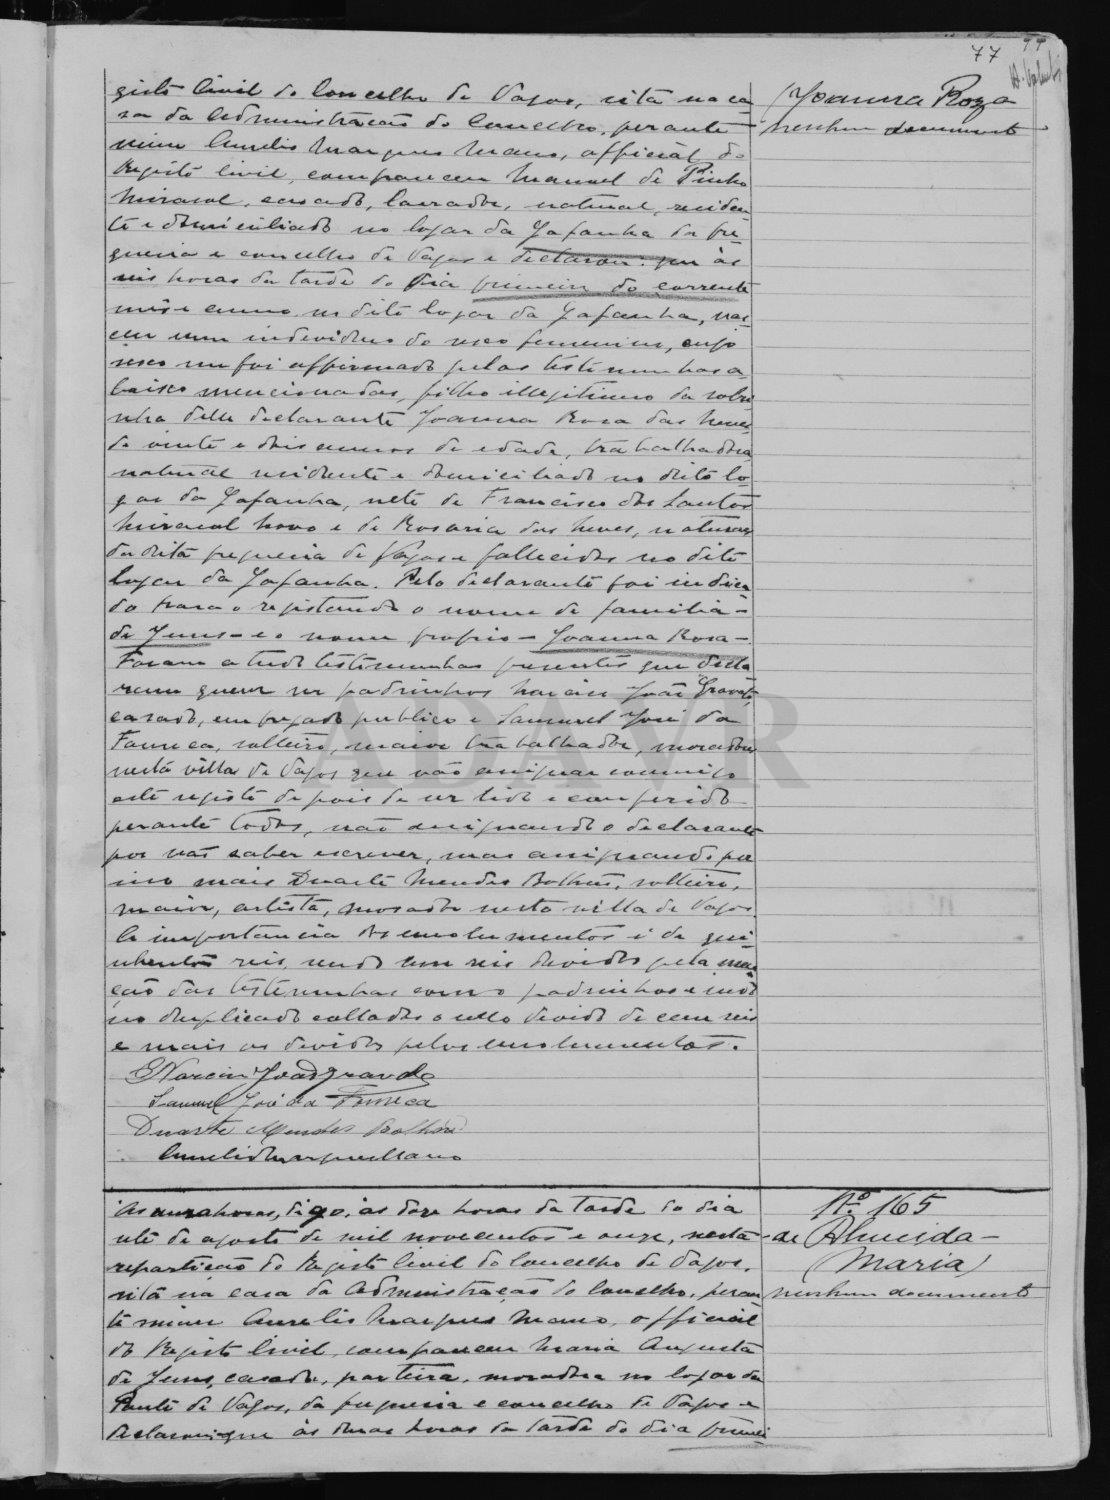 77
Joanna Roza
nenhum documento
gisto Civil do Concelho de Vagos, sita na ca
sa da Administração do Concelho, perante
mim Aurelio Marques Mano, official do
Registo Civil, compareceu Manuel de Pinho
Mirasol, casado, lavrador, natural, residen
te e domiciliado no logar da Gafanha da fre
guesia e concelho de Vagos e declarou: que ás
seis horas da tarde do dia primeiro do corrente
mês e anno no dito logar da Gafanha, nas
ceu um individuo do sexo femenino, cujo
sexo me foi affirmado pelas testemunhas a
baixo mencionadas, filho illegitimo da sobri
nha delle declarante Joanna Rosa das Neves
de vinte e dois annos de edade, trabalhadora
natural residente e domiciliado no dito lo
gar da Gafanha, neto de Francisco dos Santos
Mirasol Novo e de Rosaria das Neves, naturaes
da dita freguesia de Vagos e fallecidos no dito
logar da Gafanha. Pelo declarante foi indica
do para o registando o nome de familia -
de Jesus - e o nome proprio - Joanna Rosa -
Foram a tudo testemunhas presentes que decla
raram querer ser padrinhos Narciso João Gravato,
casado, empregado publico e Samuel José da
Fonseca, solteiro, maior trabalhador, morador
nesta villa de Vagos que vão assignar commigo
este registo depois de ser lido e conferido
perante todos, não assignando o declarante
por não saber escrever, mas assignando por
isso mais Duarte Mendes Bolhão, solteiro,
maior, artista, morador nesta villa de Vagos.
A importancia dos emolumentos é de qui
nhentos reis, sendo cem reis devidos pela men
ção das testemunhas como padrinhos e
no duplicado collados o sello devido de cem reis
e mais os devidos pelos emolumentos.
Narciso João Gravato
Samuel José da Fonseca
Duarte Mendes Bolhão
Aurelio Marques Mano
Nº 165
de Almeida -
(Maria)
nenhum documento
As horas, digo, ás doze horas da tarde do dia
sete de agosto de mil novecentos e onze, nesta
repartição do Registo Civil do Concelho de Vagos,
sita na casa da Administração do Concelho, peran
te mim Aurelio Marques Mano, official
do Registo Civil, compareceu Maria Augusta
de Jesus, casada, parteira, moradora no logar da
Ponte de Vagos, da freguesia e concelho de Vagos e
declarou: que ás duas horas da tarde do dia primei
ADAVR